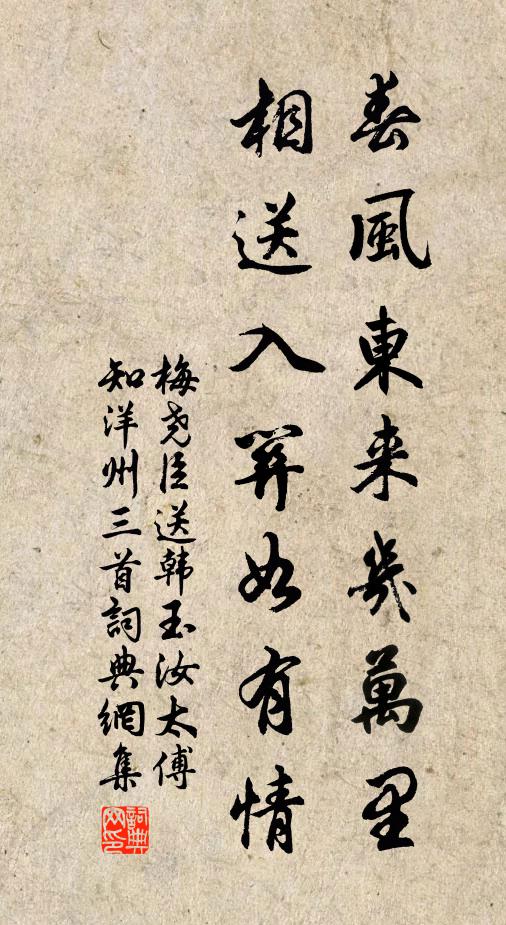 春風東来幾萬里
相送入關如有情
梅尧臣送韩玉汝太傅
知洋州三首詞典網集
詞典
网印